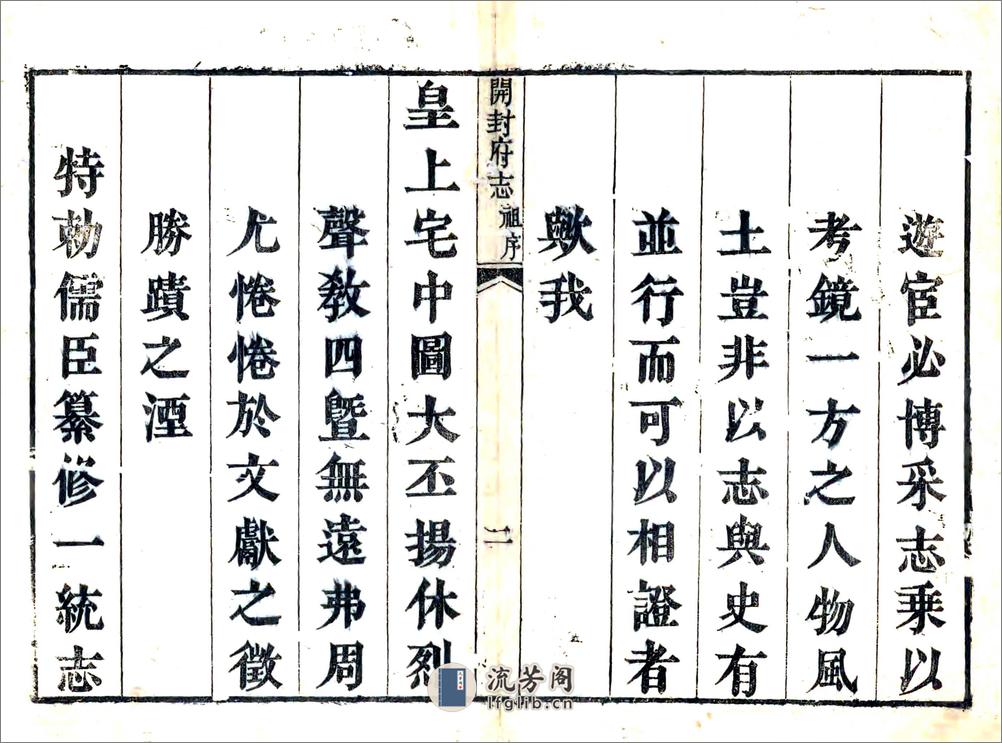 遊宦必博采志乗以
考鏡一方之人物風
土豈非以志與史有
並行而可以相證者
歟我
開封府志 祖序
二
皇上宅中圖大丕揚休烈
聲教四曁無遠弗周
尤惓惓於文獻之徵
勝蹟之湮
特勅儒臣纂修一統志
流芳阁
lfglib.cn